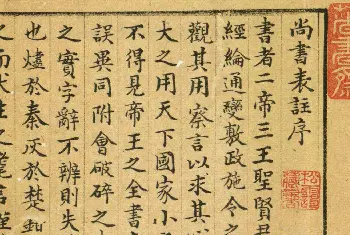 尚書表註序
書者二帝三王聖賢君
經綸通變敷政施令之
觀其用察言以求其
大之用天下國家小
不得見帝王之全書
誤異同附會破碎之
之實字辭不辨則失
也燼於秦灰於楚
之而伏生之言